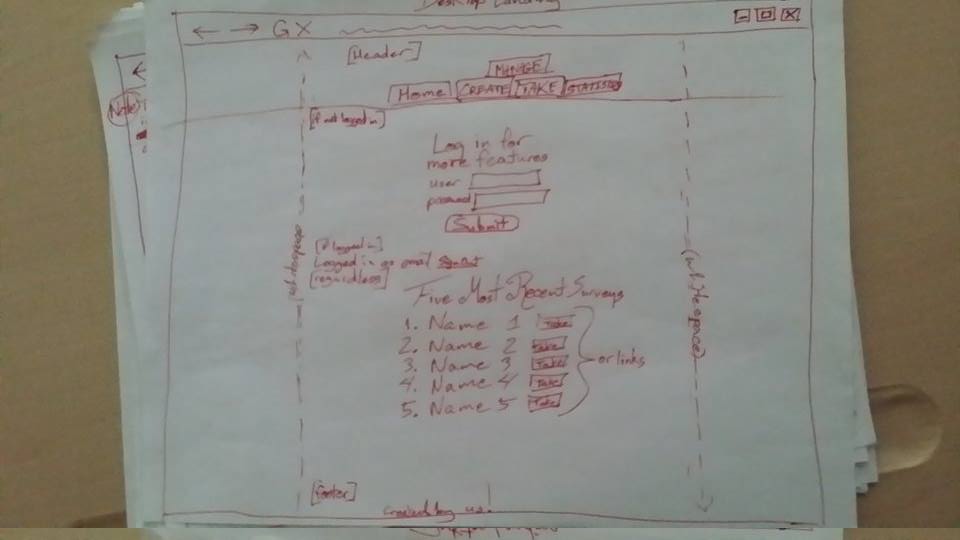 Desktop Landing
← → G X
[Header]
MANAGE
Home CREATE TAKE STATISTICS
[if not logged in]
Log in for
more features
user
password
Submit
[if logged in]
Logged in as email Sign Out
[regardless]
Five Most Recent Surveys
1. Name 1 Take
2. Name 2 Take
3. Name 3 Take
4. Name 4 Take
5. Name 5 Take
or links
whitespace
(whitespace)
[footer]
created by us.
Note